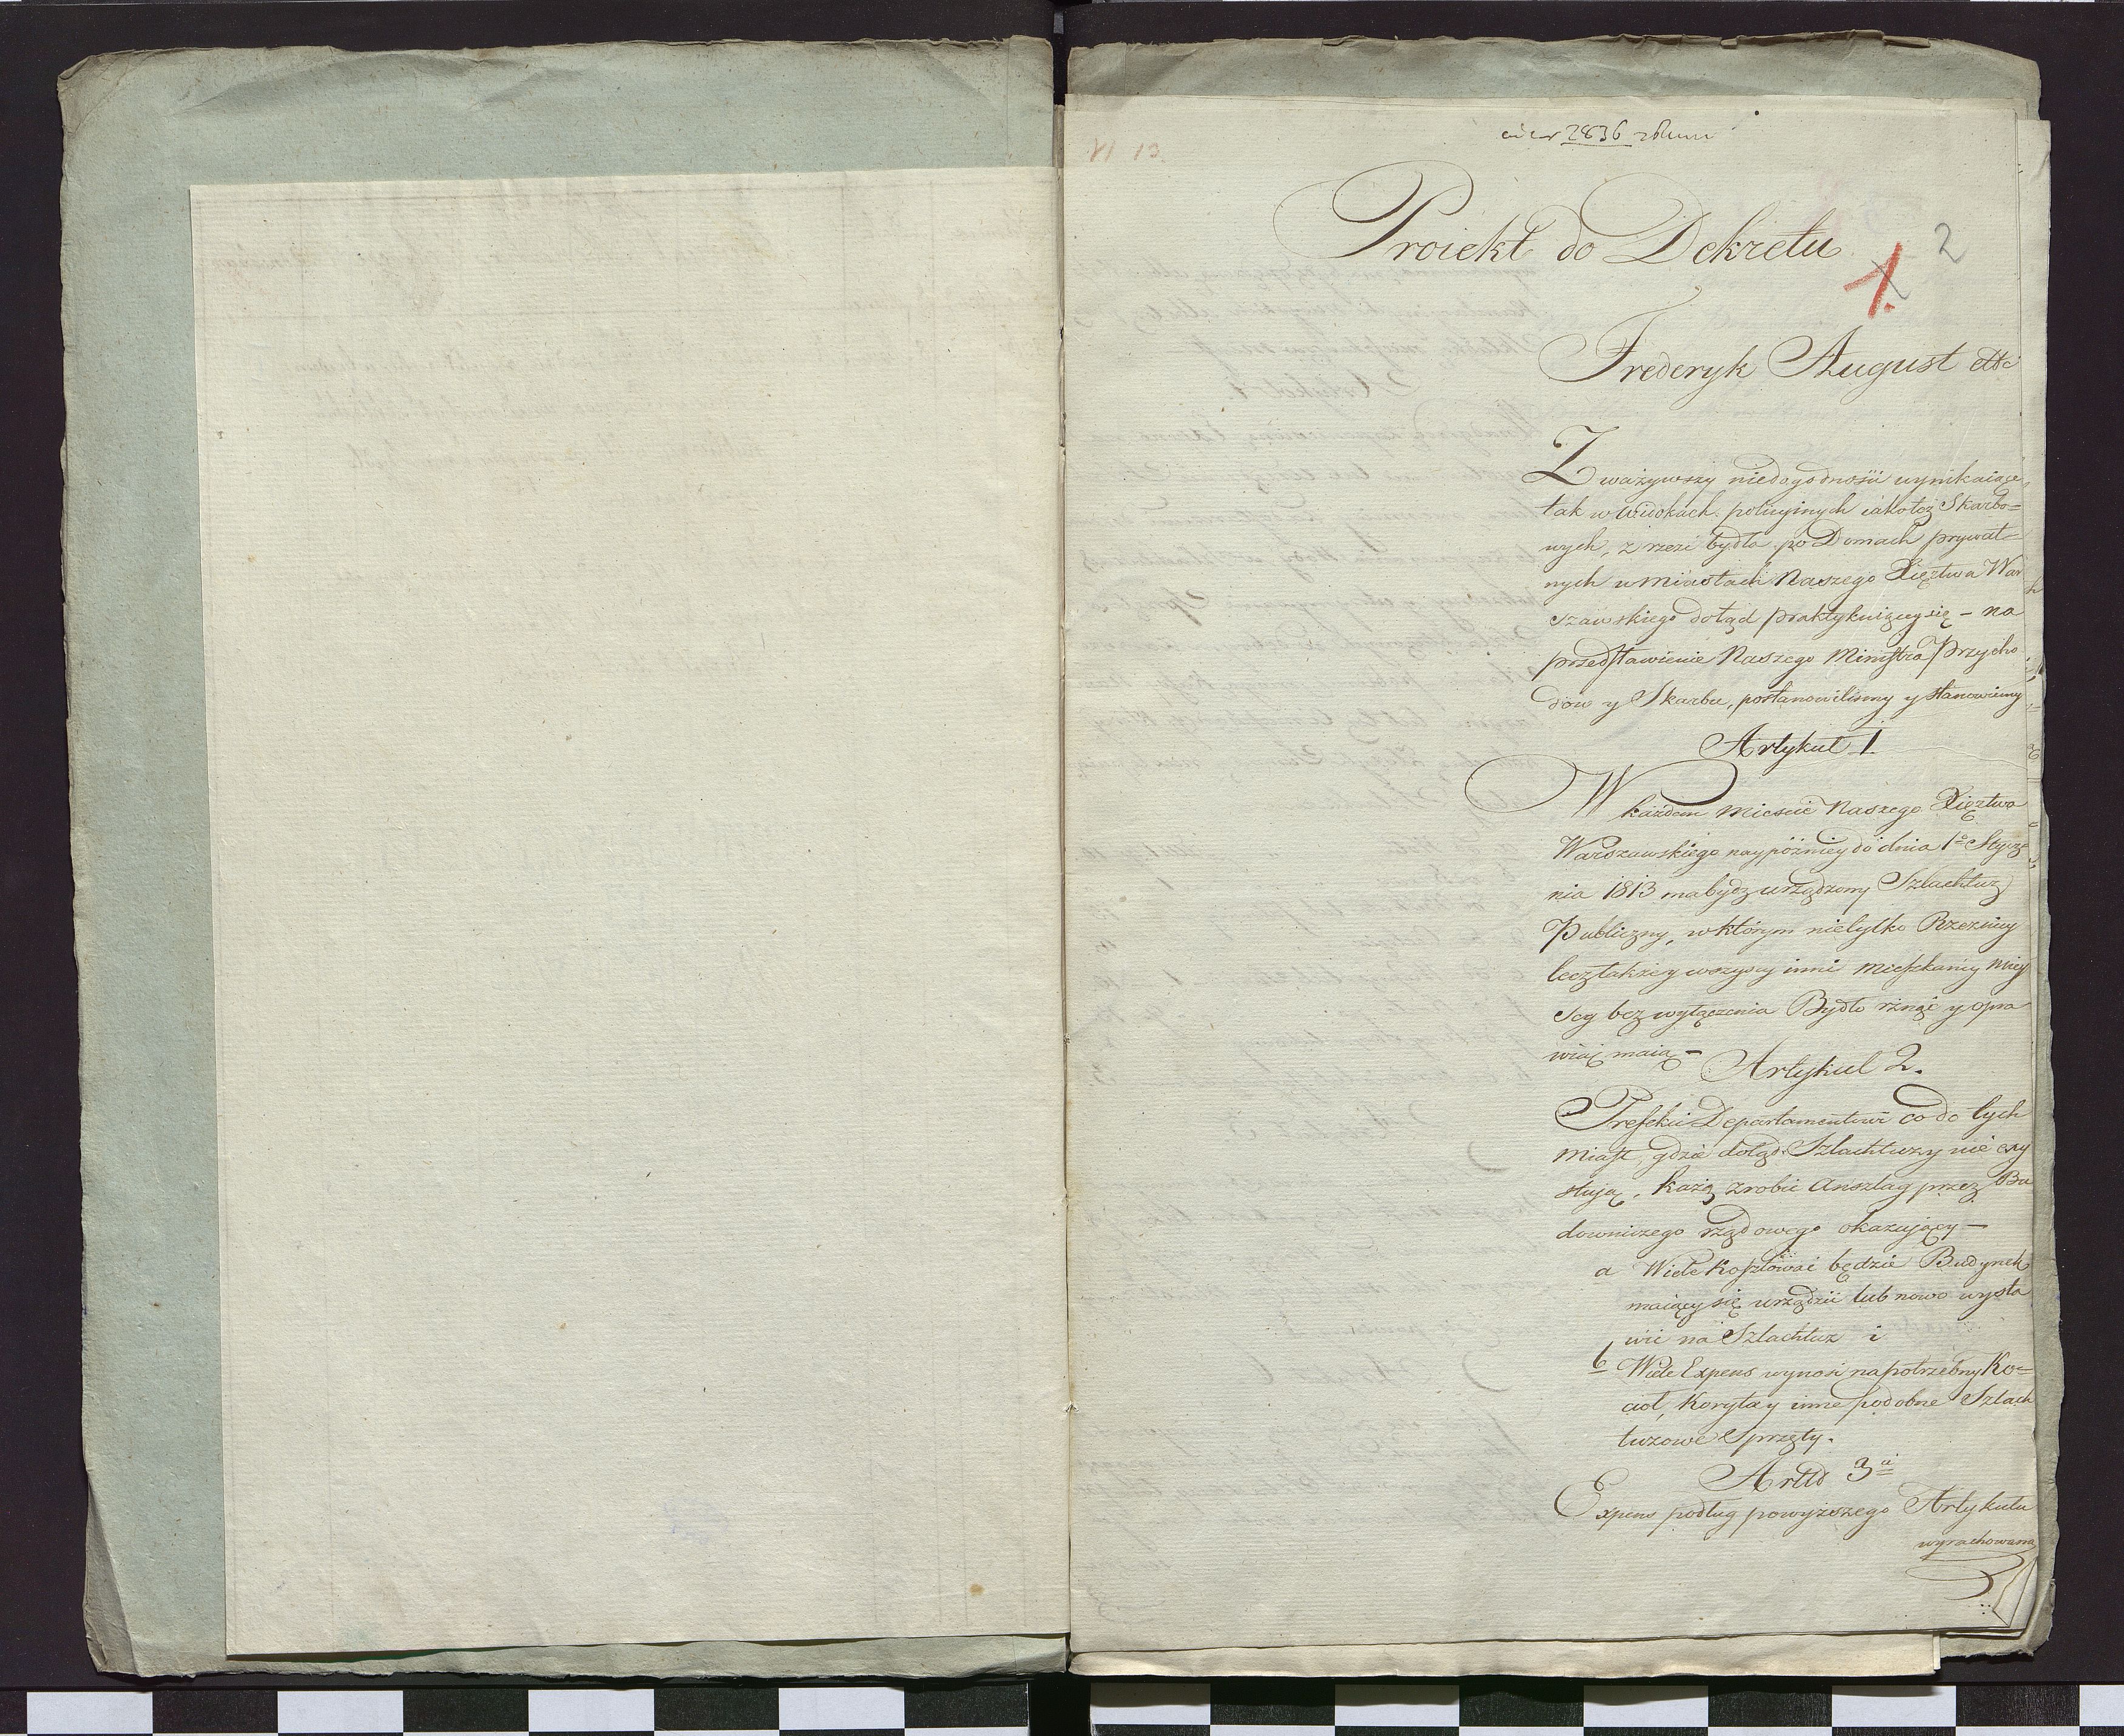 2836
VI 13.
Proiekt do Dekretu
1. 2
Frederyk August etc
Zważywszy niedogodności wynikaiące
tak w widokach policyinych iakoteż Skarbo=
wych, z rzezi bydła po Domach prywat=
nych w miastach Naszego Xięztwa War
szawskiego dotąd praktykuiącey się - na
przedstawienie Naszego Ministra Przycho
dow y Skarbu, postanowilismy y stanowiemy
Artykuł 1.
W każdem miescie Naszego Xięztwa
Warszawskiego naypóźniey do dnia 1º Stycz
nia 1813 ma bydz urządzony Szlachtuz
Publiczny, w którym nietylko Rzeznicy
lecz także y wszyscy inni mieszkańcy miey
scy bez wyłączenia Bydło rżnąć y opra
wiać maią -
Artykuł 2.
Prefekci Departamentowi co do tych
miast, gdzie dotąd Szlachtuzy nie exy
stują, każą zrobić Anszlag przez Bu
downiczego rządowego okazujący -
a Wiele kosztować będzie Budynek
maiący się urządzić lub nowo wysta
wić na Szlachtuz i
b Wiele Expens wynosi na potrzebny Ko=
cioł, Koryta y inne podobne Szlach
tuzowe Sprzęty.
Artłd 3ci
Expens podług powyższego Artykułu
wyrachowana